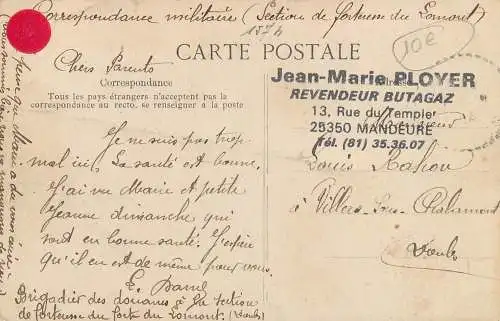 Correspondance militaire (Section de forteresse du Lomont)
10€
CARTE POSTALE
Chers Parents
Correspondance
Tous les pays étrangers n'acceptent pas la
correspondance au recto, se renseigner à la poste
Jean-Marie PLOYER
REVENDEUR BUTAGAZ
13, Rue du Temple
25350 MANDEURE
Tél. (81) 35.36.07
Monsieur
Louis
à Villers-sous-Chalamont
Doubs
Je ne suis pas trop
mal ici. La santé est bonne.
J'ai vu Marie et petite
Jeanne dimanche qui
sont en bonne santé. J'espère
qu'il en est de même pour vous.
E.
Brigadier des douanes à la section
de forteresse du fort du Lomont. (Doubs)